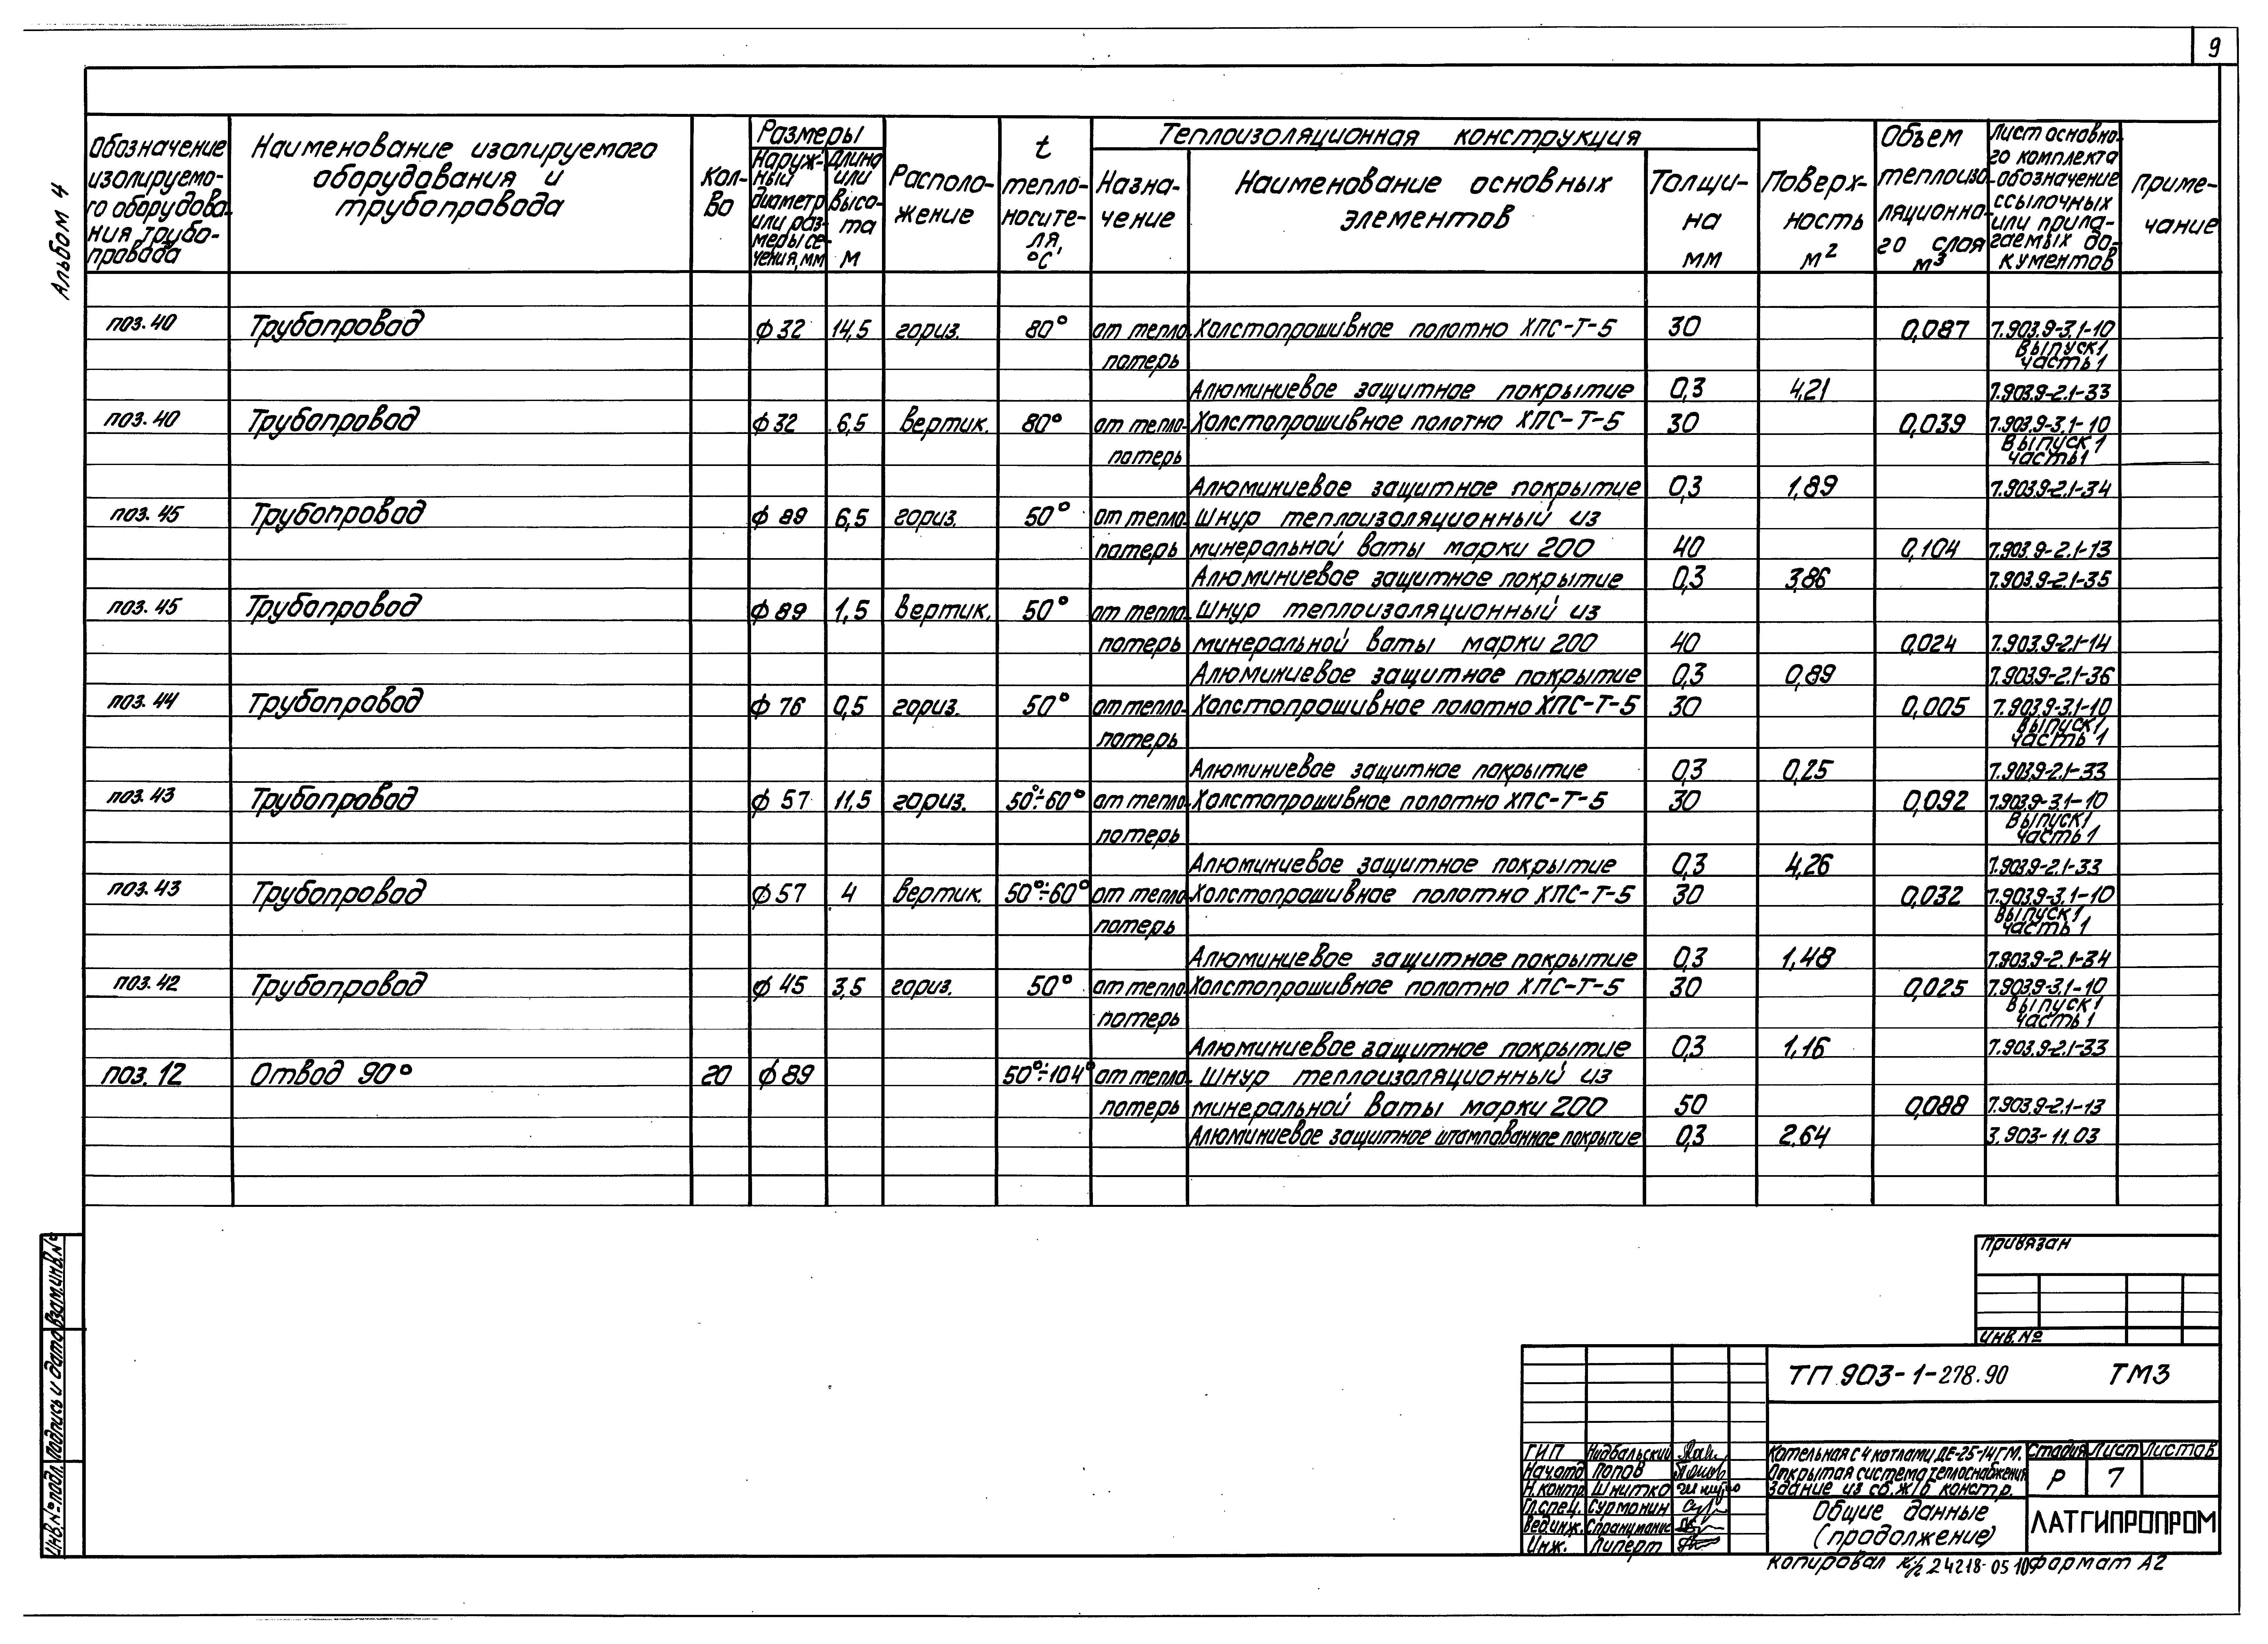 9
Альбом 4
Обозначение изолируемого оборудования, трубопровода
Наименование изолируемого оборудования и трубопровода
Кол-во
Размеры
Наружный диаметр или размеры сечения, мм
Длина или высота м
Расположение
t теплоносителя, °С
Теплоизоляционная конструкция
Назначение
Наименование основных элементов
Толщина мм
Поверхность м²
Объем теплоизоляционного слоя м³
Лист основного комплекта обозначение ссылочных или прилагаемых документов
Примечание
поз. 40 Трубопровод ф 32 14,5 гориз. 80° от тепло- Холстопрошивное полотно ХПС-Т-5 30 0,087 7.903.9-3.1-10
потерь Выпуск 1 часть 1
Алюминиевое защитное покрытие 0,3 4,21 7.903.9-2.1-33
поз. 40 Трубопровод ф 32 6,5 вертик. 80° от тепло- Холстопрошивное полотно ХПС-Т-5 30 0,039 7.903.9-3.1-10
потерь Выпуск 1 часть 1
Алюминиевое защитное покрытие 0,3 1,89 7.903.9-2.1-34
поз. 45 Трубопровод ф 89 6,5 гориз. 50° от тепло- Шнур теплоизоляционный из
потерь минеральной ваты марки 200 40 0,104 7.903.9-2.1-13
Алюминиевое защитное покрытие 0,3 3,86 7.903.9-2.1-35
поз. 45 Трубопровод ф 89 1,5 вертик. 50° от тепло- Шнур теплоизоляционный из
потерь минеральной ваты марки 200 40 0,024 7.903.9-2.1-14
Алюминиевое защитное покрытие 0,3 0,89 7.903.9-2.1-36
поз. 44 Трубопровод ф 76 0,5 гориз. 50° от тепло- Холстопрошивное полотно ХПС-Т-5 30 0,005 7.903.9-3.1-10
потерь Выпуск 1 часть 1
Алюминиевое защитное покрытие 0,3 0,25 7.903.9-2.1-33
поз. 43 Трубопровод ф 57 11,5 гориз. 50°÷60° от тепло- Холстопрошивное полотно ХПС-Т-5 30 0,092 7.903.9-3.1-10
потерь Выпуск 1 часть 1
Алюминиевое защитное покрытие 0,3 4,26 7.903.9-2.1-33
поз. 43 Трубопровод ф 57 4 вертик. 50°÷60° от тепло- Холстопрошивное полотно ХПС-Т-5 30 0,032 7.903.9-3.1-10
потерь Выпуск 1 часть 1
Алюминиевое защитное покрытие 0,3 1,48 7.903.9-2.1-34
поз. 42 Трубопровод ф 45 3,5 гориз. 50° от тепло- Холстопрошивное полотно ХПС-Т-5 30 0,025 7.903.9-3.1-10
потерь Выпуск 1 часть 1
Алюминиевое защитное покрытие 0,3 1,16 7.903.9-2.1-33
поз. 12 Отвод 90° 20 ф 89 50°÷104° от тепло- Шнур теплоизоляционный из
потерь минеральной ваты марки 200 50 0,088 7.903.9-2.1-13
Алюминиевое защитное штампованное покрытие 0,3 2,64 3.903-11.03
Привязан
Инв. №
ТП 903-1-278.90 ТМ3
ГИП Нидбальский
Нач.отд Попов
Н.контр. Шнитко
Гл.спец. Сурмонин
Вед.инж.
Инж. Липерт
Котельная с 4 котлами ДЕ-25-14ГМ.
Открытая система теплоснабжения
Здание из сб.ж/б констр.
Стадия Лист Листов
Р 7
Общие данные
(продолжение)
ЛАТГИПРОПРОМ
Копировал 24218-05 10 Формат А2
Инв.№ подл. Подпись и дата Взам.инв.№